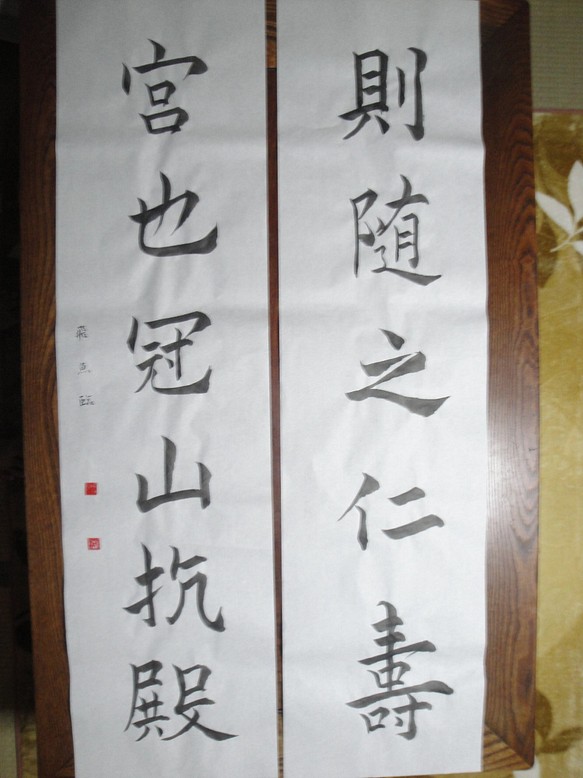 則随之仁壽
宮也冠山抗殿
臨